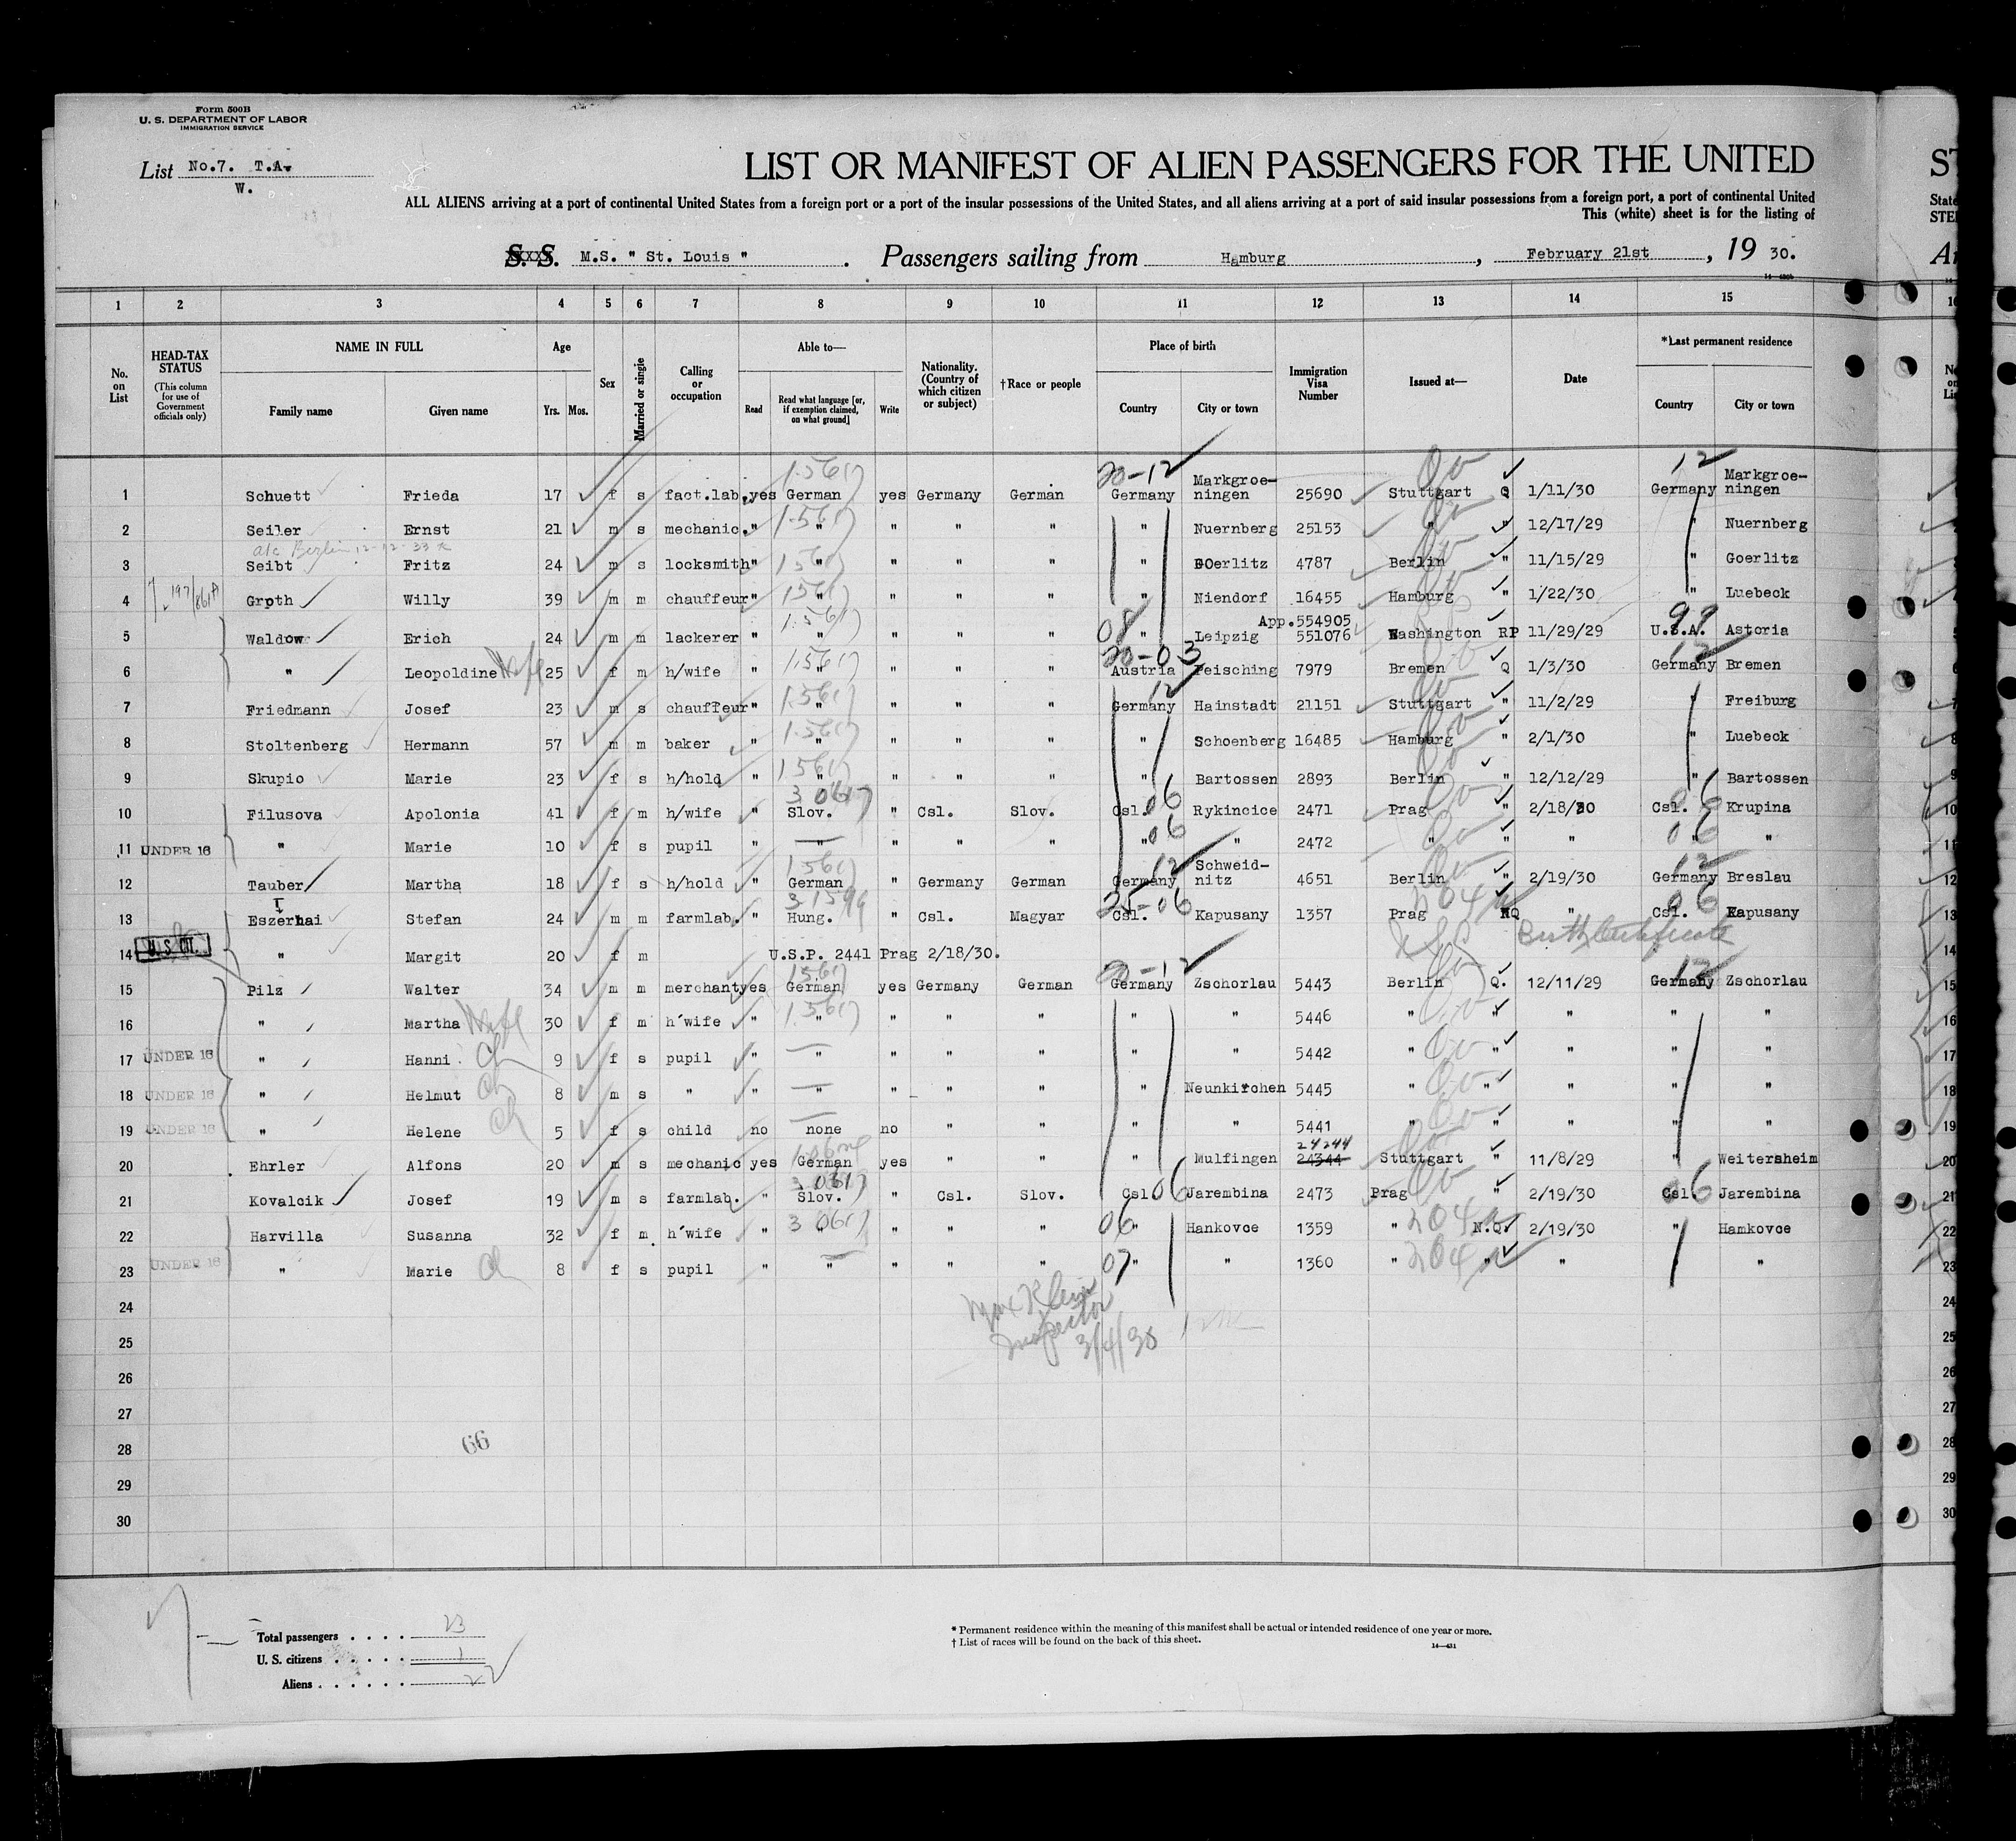 Form 500B
U. S. DEPARTMENT OF LABOR
IMMIGRATION SERVICE
List No.7. T.A.
W.
LIST OR MANIFEST OF ALIEN PASSENGERS FOR THE UNITED
ST
ALL ALIENS arriving at a port of continental United States from a foreign port or a port of the insular possessions of the United States, and all aliens arriving at a port of said insular possessions from a foreign port, a port of continental United
State
This (white) sheet is for the listing of
STE
S. S. M.S. " St. Louis " . Passengers sailing from Hamburg , February 21st , 19 30.
1 2 3 4 5 6 7 8 9 10 11 12 13 14 15
No. on List
HEAD-TAX STATUS (This column for use of Government officials only)
NAME IN FULL Family name Given name
Age Yrs. Mos.
Sex
Married or single
Calling or occupation
Able to— Read Read what language [or, if exemption claimed, on what ground] Write
Nationality. (Country of which citizen or subject)
†Race or people
Place of birth Country City or town
Immigration Visa Number
Issued at—
Date
*Last permanent residence Country City or town
1 Schuett Frieda 17 f s fact.lab. yes German yes Germany German Germany Markgroe-ningen 25690 Stuttgart Q 1/11/30 Germany Markgroe-ningen
2 Seiler Ernst 21 m s mechanic. " " " " " " Nuernberg 25153 " " 12/17/29 " Nuernberg
a/c Berlin 12-12-33
3 Seibt Fritz 24 m s locksmith " " " " " " Goerlitz 4787 Berlin " 11/15/29 " Goerlitz
4 Groth Willy 39 m m chauffeur " " " " " " Niendorf 16455 Hamburg " 1/22/30 " Luebeck
5 Waldow Erich 24 m m lackerer " " " " " " Leipzig App.554905 551076 Washington RP 11/29/29 U.S.A. Astoria
6 " Leopoldine Wife 25 f m h/wife " " " " " Austria Peisching 7979 Bremen Q 1/3/30 Germany Bremen
7 Friedmann Josef 23 m s chauffeur " " " " " Germany Hainstadt 21151 Stuttgart " 11/2/29 " Freiburg
8 Stoltenberg Hermann 57 m m baker " " " " " " Schoenberg 16485 Hamburg " 2/1/30 " Luebeck
9 Skupio Marie 23 f s h/hold " " " " " " Bartossen 2893 Berlin " 12/12/29 " Bartossen
10 Filusova Apolonia 41 f m h/wife " Slov. " Csl. Slov. Csl. Rykincice 2471 Prag " 2/18/30 Csl. Krupina
11 UNDER 16 " Marie 10 f s pupil " " " " " " " 2472 " " " " "
12 Tauber Martha 18 f s h/hold " German " Germany German Germany Schweid-nitz 4651 Berlin " 2/19/30 Germany Breslau
13 Eszerhai Stefan 24 m m farmlab. " Hung. " Csl. Magyar Csl. Kapusany 1357 Prag NQ " Csl. Kapusany
14 U.S. CIT. " Margit 20 f m U.S.P. 2441 Prag 2/18/30. Birth Certificate
15 Pilz Walter 34 m m merchant yes German yes Germany German Germany Zschorlau 5443 Berlin Q. 12/11/29 Germany Zschorlau
16 " Martha Wife 30 f m h'wife " " " " " " " 5446 " " " " "
17 UNDER 16 " Hanni Ch 9 f s pupil " " " " " " " 5442 " " " " "
18 UNDER 16 " Helmut Ch 8 m s " " " " " " " Neunkirchen 5445 " " " " "
19 UNDER 16 " Helene Ch 5 f s child no none no " " " " 5441 " " " " "
20 Ehrler Alfons 20 m s mechanic yes German yes " " " Mulfingen 24344 24244 Stuttgart " 11/8/29 " Weitersheim
21 Kovalcik Josef 19 m s farmlab. " Slov. " Csl. Slov. Csl Jarembina 2473 Prag " 2/19/30 Csl. Jarembina
22 Harvilla Susanna 32 f m h'wife " " " " " " Hankovce 1359 " N.Q. 2/19/30 " Hamkovce
23 UNDER 16 " Marie Ch 8 f s pupil " " " " " " " 1360 " " " " "
24
Max Klein
25
Inspector
3/4/30
26
27
28
66
29
30
Total passengers . . . . 23
U. S. citizens . . . . . 1
Aliens . . . . . . 22
* Permanent residence within the meaning of this manifest shall be actual or intended residence of one year or more.
† List of races will be found on the back of this sheet.
14—431